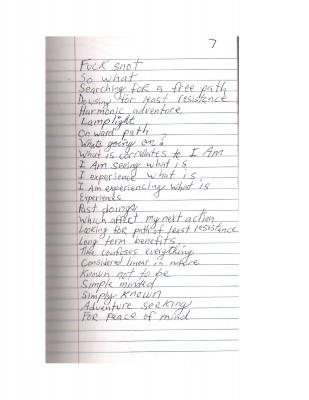 7
Fuck snot
So what
Searching for a free path
Dowsing for least resistance
Harmonic adventure
Lamplight
On ward path
Whats going on?
What is correlates to I Am
I Am seeing what is
I experience what is
I Am experiencing what is
Experiences
Past doings
Which affect my next action
Looking for path of least resistance
Long term benefits
Time confuses everything
Considered linear in nature
Known not to be
Simple minded
Simply known
Adventure seeking
For peace of mind